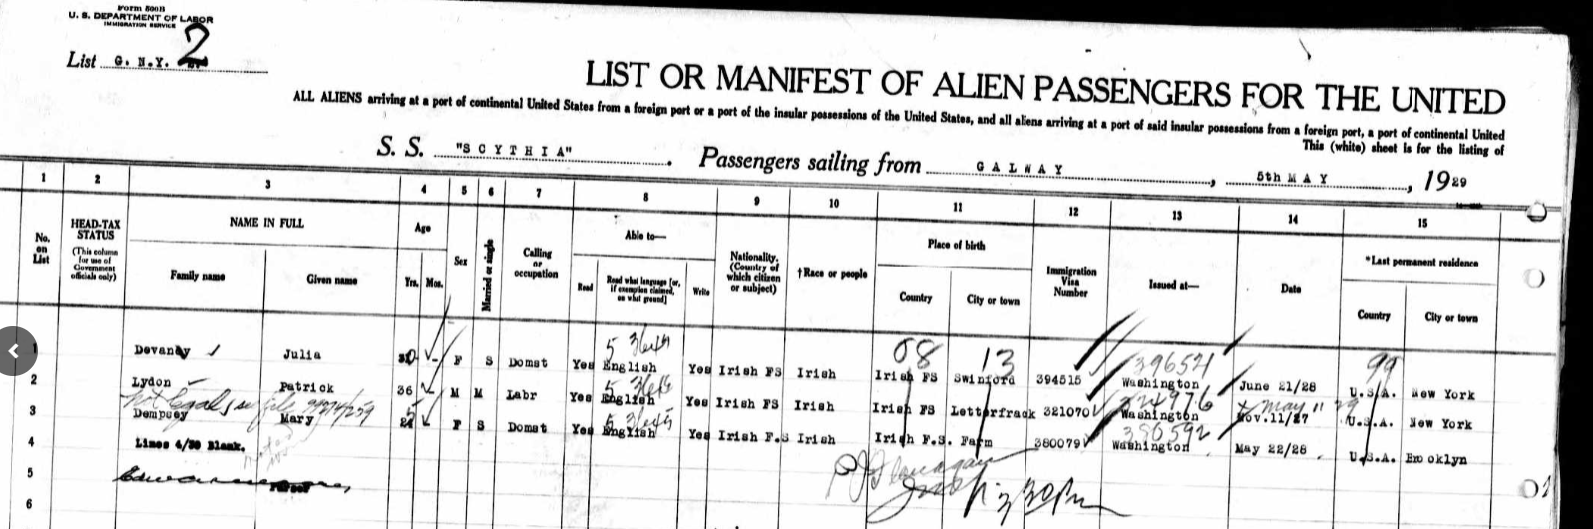 Form 500B
U. S. DEPARTMENT OF LABOR
IMMIGRATION SERVICE
List G. N.Y. 2
LIST OR MANIFEST OF ALIEN PASSENGERS FOR THE UNITED
ALL ALIENS arriving at a port of continental United States from a foreign port or a port of the insular possessions of the United States, and all aliens arriving at a port of said insular possessions from a foreign port, a port of continental United
This (white) sheet is for the listing of
S. S. "SCYTHIA" . Passengers sailing from GALWAY , 5th MAY , 1929
1 2 3 4 5 6 7 8 9 10 11 12 13 14 15
No. on List
HEAD-TAX STATUS
(This column for use of Government officials only)
NAME IN FULL
Family name Given name
Age
Yrs. Mos.
Sex
Married or single
Calling or occupation
Able to—
Read Read what language [or, if exemption claimed, on what ground] Write
Nationality. (Country of which citizen or subject)
†Race or people
Place of birth
Country City or town
Immigration Visa Number
Issued at—
Date
*Last permanent residence
Country City or town
5 3645 08 13 396521 99
1 Devaney Julia F S Domst Yes English Yes Irish FS Irish Irish FS Swinford 394515 Washington June 21/28 U.S.A. New York
2 Lydon Patrick 36 M M Labr Yes English Yes Irish FS Irish Irish FS Letterfrack 321070 Washington Nov.11/27 U.S.A. New York
not legal
3 Dempsey Mary F S Domst Yes English Yes Irish F.S Irish Irish F.S. Farm 380079 Washington May 22/28 U.S.A. Brooklyn
4 Lines 4/30 Blank.
5
6